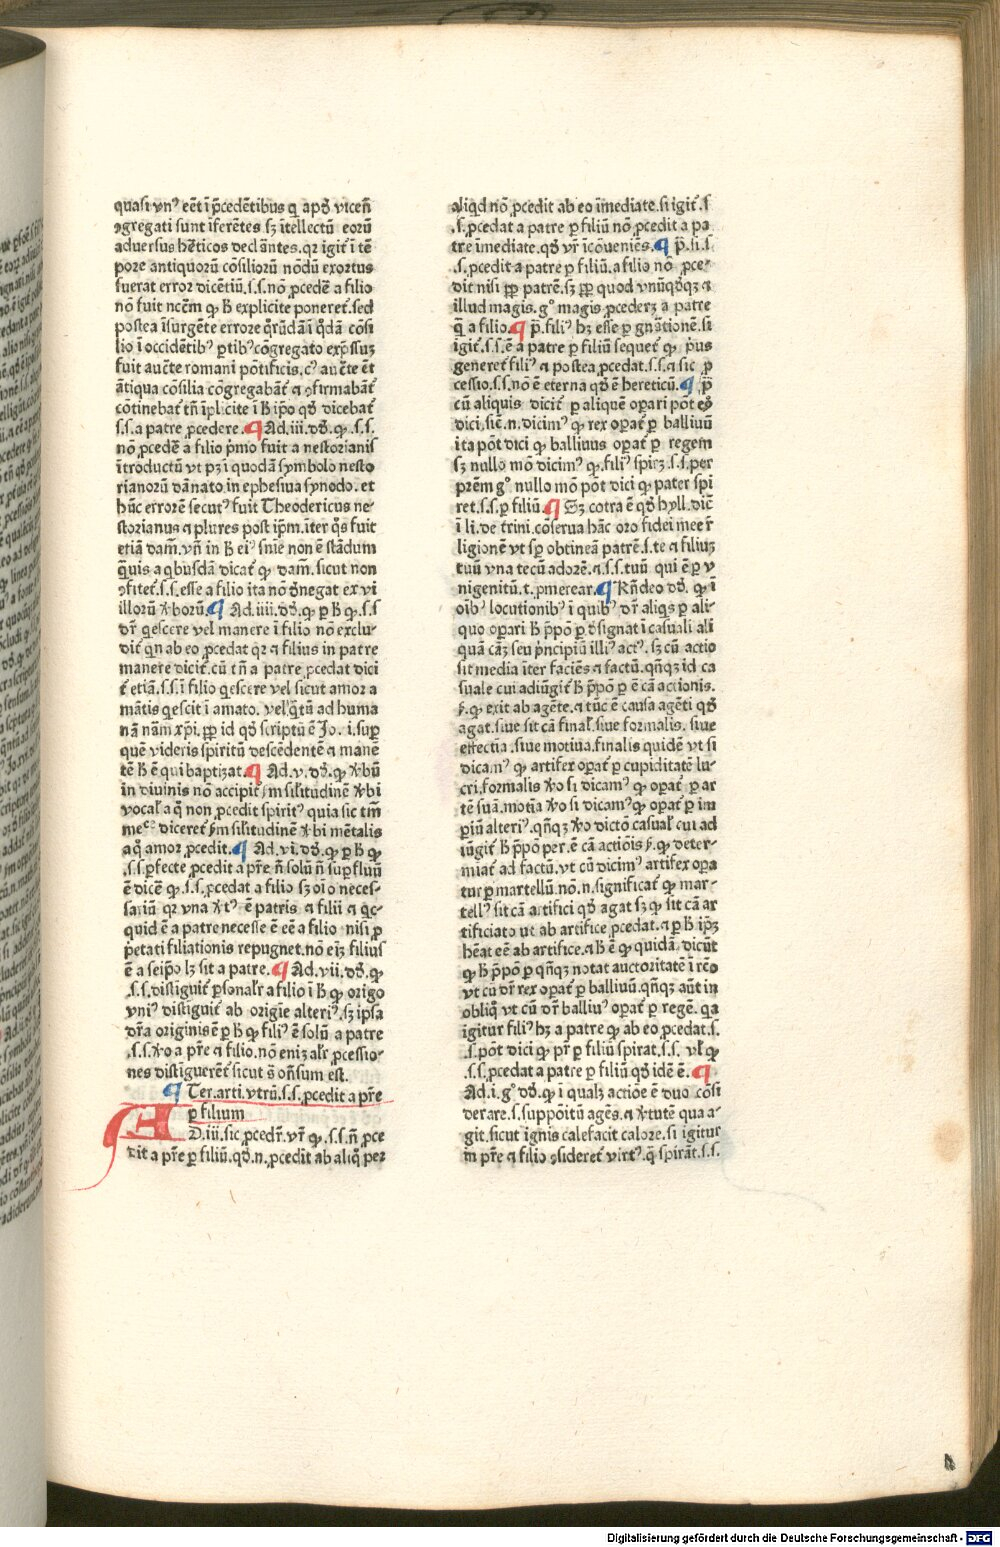 quasi vnꝰ eēt ī p̄cedētibus q apd̄ vicen̄
ꝯgregati sunt īferētes sʒ ītellectū eorū
aduersus hēticos declātes. qꝛ igit̄ ī tē
pore antiquorū cōsiliorū nōdū exortus
fuerat error dicētiū .s.s. nō ꝓcedē a filio
nō fuit ncēm ꝙ h̄ explicite poneret̄. sed
postea īsurgēte errore q̄rūdā ī q̄dā cōsi
lio ī occidētibꝰ ꝑtibꝰ cōgregato exp̄ssuʒ
fuit auc̄te romani pōtificis. cꝰ auc̄te ēt
ātiqua cōsilia cōgregabāt̄ ⁊ ꝯfirmabāt̄
cōtinebat̄ tn̄ īplicite ī h̄ ip̄o qd̄ dicebat̄
s.s. a patre ꝓcedere. ¶ Ad .iii. dd̄. ꝙ .s.s.
nō ꝓcedē a filio p̄mo fuit a nestorianis
ītroductū vt pʒ ī quodā symbolo nesto
rianorū dānato in ephesiua synodo. et
hūc errorē secutꝰ fuit Theodericus ne-
storianus ⁊ plures post ip̄m. īter q̄s fuit
etiā dam̄. vn̄ in h̄ eiꝰ sn̄ie non ē stādum
q̄uis a qbusdā dicat̄ ꝙ dam̄. sicut non
ꝯfitet̄ .s.s. esse a filio ita nō d̄negat ex vi
illorū v̄borū. ¶ Ad .iiii. dd̄. ꝙ ꝑ h̄ ꝙ .s.s
dr̄ qescere vel manere ī filio nō exclu-
dit̄ qn ab eo ꝓcedat qꝛ ⁊ filius in patre
manere dicit̄. cū tn̄ a patre ꝓcedat dici
t̄ etiā .s.s. ī filio qescere vel sicut amor a
mātis qescit ī amato. vel q̄tū ad huma
nā nām xp̄i. ꝓp̄ id qd̄ scriptū ē Jo. i. suꝑ
quē videris spiritū descēdentē ⁊ manē
tē h̄ ē qui baptizat. ¶ Ad .v. dd̄. ꝙ v̄bū
in diuinis nō accipit̄ s̄m sil̄itudinē v̄bi
vocal̄ a q̄ non ꝓcedit spiritꝰ quia sic tm̄
meᶜᵉ diceret̄ s̄m sil̄itudinē v̄bi mētalis
a q̄ amor ꝓcedit. ¶ Ad .vi. dd̄. ꝙ ꝑ h̄ ꝙ
.s.s. ꝑfecte ꝓcedit a pr̄e n̄ solū n̄ suꝑfluū
ē dicē ꝙ .s.s. ꝓcedat a filio sʒ oīo neces-
sariū qꝛ vna v̄tꝰ ē patris ⁊ filii ⁊ qc-
quid ē a patre necesse ē eē a filio nisi ꝓ
p̄etati filiationis repugnet. nō eīʒ filius
ē a seip̄o lʒ sit a patre. ¶ Ad .vii. dd̄. ꝙ
.s.s. distīguit̄ ꝑsonalr̄ a filio ī h̄ ꝙ origo
vniꝰ distīguit̄ ab origīe alteriꝰ. sʒ ipsa
dr̄a originis ē ꝑ h̄ ꝙ filiꝰ ē solū a patre
.s.s. v̄o a pr̄e ⁊ filio. nō eniʒ alr̄ ꝓcessio-
nes distīguerēt̄ sicut s̄ on̄sum est.
¶ Ter. arti. vtrū .s.s. ꝓcedit a pr̄e
ꝑ filium
AD .iii. sic ꝓcedr̄. vr̄ ꝙ .s.s. n̄ ꝓce
dit a pr̄e ꝑ filiū. qd̄ .n. ꝓcedit ab aliq̄ ꝑer
aliqd nō ꝓcedit ab eo īmediate. si igit̄ .s
.s. ꝓcedat a patre ꝑ filiū nō ꝓcedit a pa
tre īmediate. qd̄ vr̄ īcōueniēs. ¶ p̄. si .s.
.s. ꝓcedit a patre ꝑ filiū. a filio nō ꝓce-
dit nisi ꝓp̄ patrē. sʒ ꝓp̄ quod vnūqd̄qʒ ⁊
illud magis. gͦ magis ꝓcederʒ a patre
q̄ a filio. ¶ p̄. filiꝰ hʒ esse ꝑ gn̄ationē. si
igit̄ .s.s. ē a patre ꝑ filiū sequet̄ ꝙ p̄us
generet̄ filiꝰ ⁊ postea ꝓcedat .s.s. ⁊ sic ꝓ
cessio .s.s. nō ē eterna qd̄ ē hereticū. ¶ p̄
cū aliquis dicit̄ ꝑ aliquē oꝑari pōt eꝯ̄
dici. sic̄ .n. dicimꝰ ꝙ rex oꝑat̄ ꝑ balliuū
ita pōt dici ꝙ balliuus oꝑat̄ ꝑ regem
sʒ nullo mō dicimꝰ ꝙ filiꝰ spirʒ .s.s. per
pr̄em gͦ nullo mō pōt dici ꝙ pater spi
ret .s.s. ꝑ filiū. ¶ Sʒ cōtra ē qd̄ hyll. dic̄
ī li. de trini. cōserua hāc oro fidei mee r̄
ligionē vt sꝑ obtineā patrē .s. te ⁊ filiuʒ
tuū vna tecū adorē. ⁊ .s.s. tuū qui ē ꝑ v
nigenitū .t. ꝓmerear. ¶ Rn̄deo dd̄. ꝙ ī
oībꝰ locutionibꝰ ī quibꝰ dr̄ aliqs ꝑ ali-
quo oꝑari h̄ p̄pō ꝑ d̄signat ī casuali ali
quā cāʒ seu p̄ncipiū illiꝰ actꝰ. sʒ cū actio
sit media īter faciēs ⁊ factū. qn̄qʒ id ca
suale cui adiūgit̄ h̄ p̄pō ꝑ ē cā actionis.
s̄. ꝙ exit ab agēte. ⁊ tūc ē causa agēti qd̄
agat. siue sit cā final̄ siue formalis. siue
effectīa. siue motiua. finalis quidē vt si
dicamꝰ ꝙ artifex oꝑat̄ ꝑ cupiditatē lu-
cri. formalis v̄o si dicamꝰ ꝙ oꝑat̄ ꝑ ar
tē suā. motīa v̄o si dicamꝰ ꝙ oꝑat̄ ꝑ im
ꝑiū alteriꝰ. qn̄qʒ v̄o dictō casual̄ cui ad
iūgit̄ h̄ p̄pō ꝑer. ē cā actiōis s̄. ꝙ deter-
miat̄ ad factū. vt cū dicimꝰ artifex oꝑa
tur ꝑ martellū. nō .n. significat̄ ꝙ mar-
tellꝰ sit cā artifici qd̄ agat sʒ ꝙ sit cā ar
tificiato ut ab artifice ꝓcedat. ⁊ ꝑ h̄ ip̄ʒ
hēat eē ab artifice. ⁊ h̄ ē ꝙ quidā dicūt
ꝙ h̄ p̄pō ꝑ qn̄qʒ notat auctoritatē ī rc̄o
vt cū dr̄ rex oꝑat̄ ꝑ balliuū. qn̄qʒ aūt in
obliq̄ vt cū dr̄ balliuꝰ oꝑat̄ ꝑ regē. qa
igitur filiꝰ hʒ a patre ꝙ ab eo ꝓcedat .s.
.s. pōt dici ꝙ pr̄ ꝑ filiū spirat .s.s. vl̄ ꝙ
.s.s. ꝓcedat a patre ꝑ filiū qd̄ idē ē. ¶
Ad .i. gͦ dd̄. ꝙ ī qualʒ actiōe ē duo cōsi
derare. s. suppōitū agēs. ⁊ v̄tutē qua a-
git. sicut ignis calefacit calore. si igitur
in pr̄e ⁊ filio ꝯsideret̄ virtꝰ. q̄ spirāt .s.s.
Digitalisierung gefördert durch die Deutsche Forschungsgemeinschaft - DFG